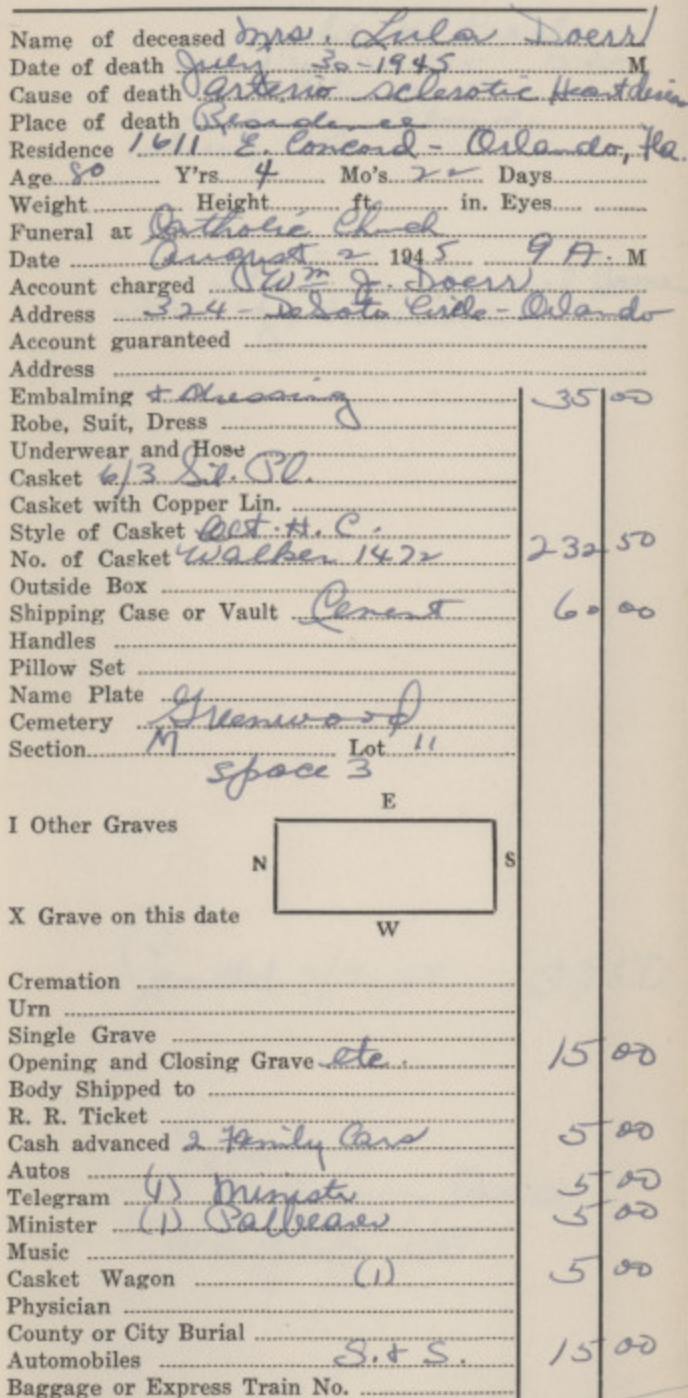 Name of deceased Mrs. Lula Doerr
Date of death July 30-1945 M
Cause of death Arterio sclerotic Heart
Place of death Residence
Residence 1611 E. Concord - Orlando, Fla.
Age 80 Y'rs 4 Mo's 22 Days
Weight Height ft. in. Eyes
Funeral at Catholic Church
Date August 2 1945 9 A. M
Account charged Wm J. Doerr
Address 324 - DeSoto Circle - Orlando
Account guaranteed
Address
Embalming & dressing 35 00
Robe, Suit, Dress
Underwear and Hose
Casket 6/3 Sil. Pl.
Casket with Copper Lin.
Style of Casket Oct. H. C.
No. of Casket Walker 1472 232 50
Outside Box
Shipping Case or Vault Cement 60 00
Handles
Pillow Set
Name Plate
Cemetery Greenwood
Section M Lot 11
space 3
E
I Other Graves
N S
X Grave on this date
W
Cremation
Urn
Single Grave
Opening and Closing Grave etc. 15 00
Body Shipped to
R. R. Ticket
Cash advanced 2 Family Cars 5 00
Autos
Telegram (1) Ministr 5 00
Minister (1) Palbearer 5 00
Music
Casket Wagon (1) 5 00
Physician
County or City Burial
Automobiles S. & S. 15 00
Baggage or Express Train No.